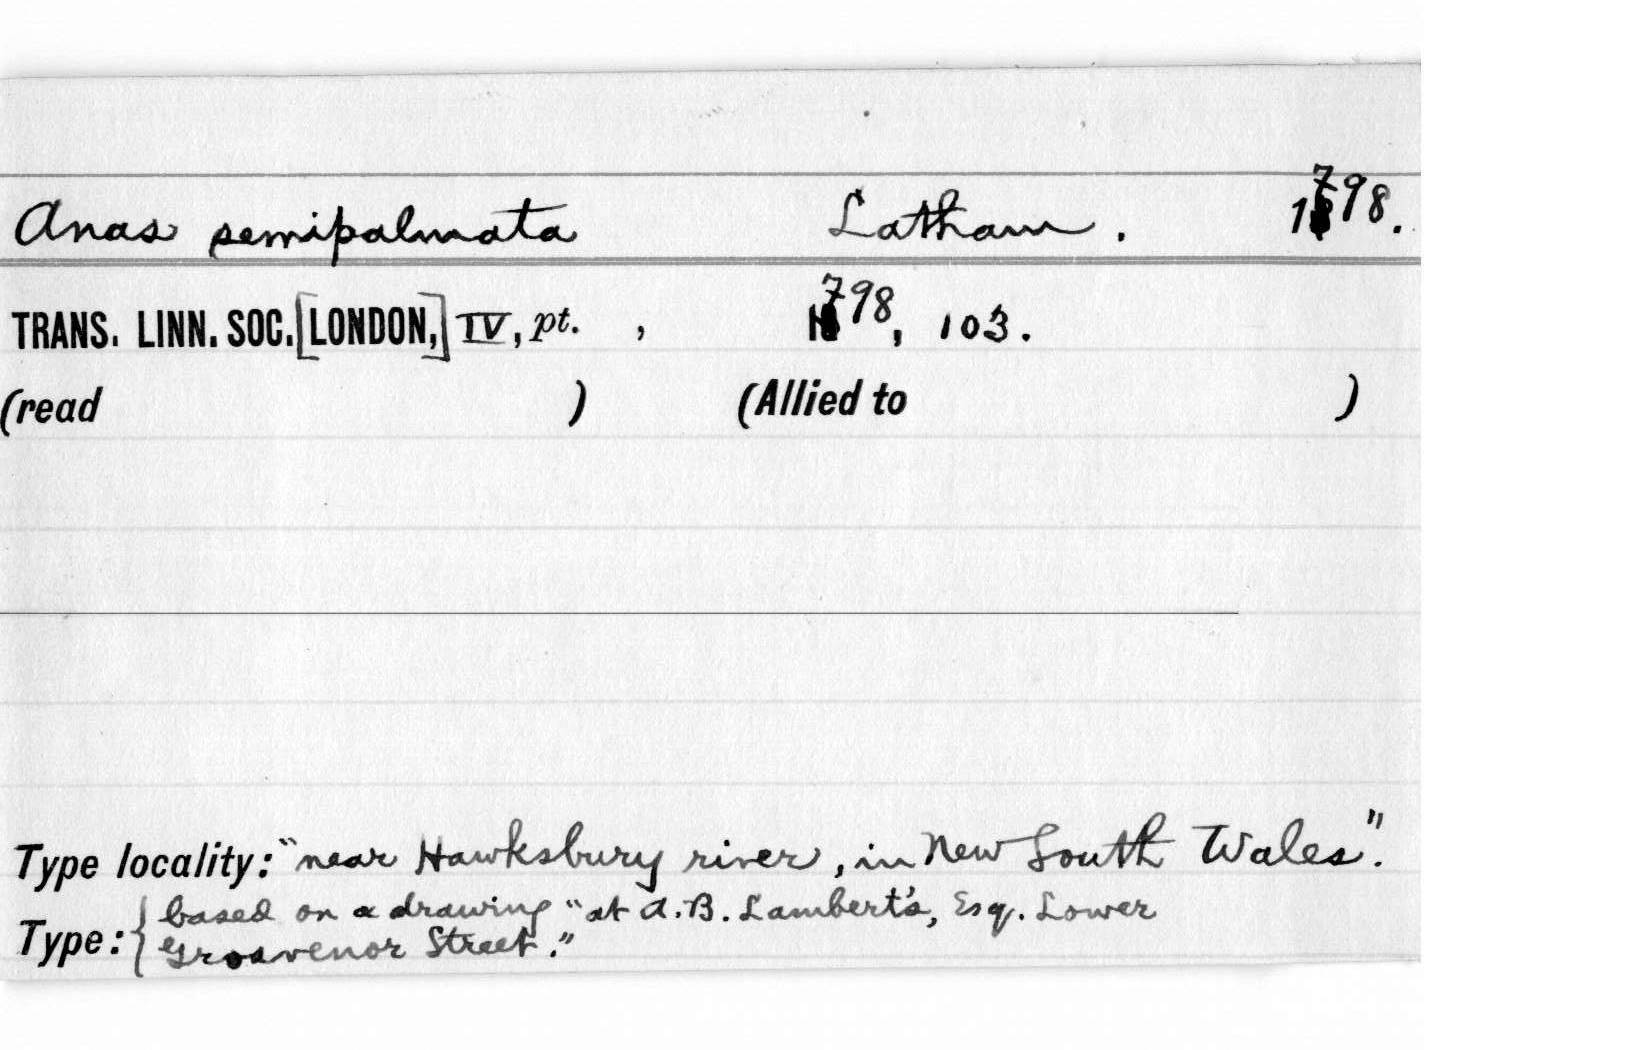 Anas semipalmata Latham. 1798.
TRANS. LINN. SOC. [LONDON,] IV, pt. , 1798, 103.
(read ) (Allied to )
Type locality: "near Hawksbury river, in New South Wales".
Type: { based on a drawing "at A.B. Lambert's, Esq. Lower
Grosvenor Street."